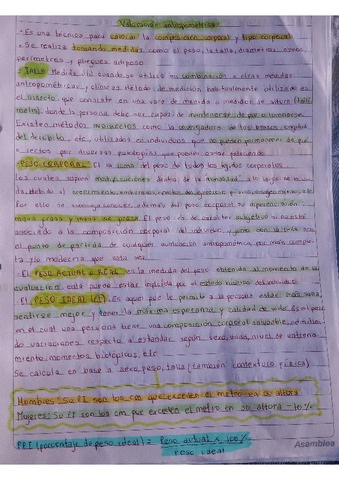 Valoración antropométrica
- Es una técnica para valorar la composición corporal y tipo corporal
- Se realiza tomando medidas como el peso, la talla, diametros oseos,
perimetros y pliegues adiposo
- TALLA: Medida útil cuando se utiliza en combinación a otras medidas
antropométricas, y el método de medición, habitualmente utilizado es
el directo que consiste en una vara de medida o medidor de altura (talli
metro) donde la persona debe ser capaz de mantenerse de pie o
Existen métodos indirectos como la envergadura de los brazos, longitud
del decúbito, etc. utilizados en individuos que no pueden
por diversas patologías que puedan estar padeciendo
- PESO CORPORAL: Es la suma del peso de todos los tejidos corporales
los cuales sufren modificaciones dentro de la
debido al crecimiento, enfermedades,
Por ello se aconseja conocer además del peso corporal su
masa grasa y masa no grasa. El peso es de carácter subjetivo si no esta
asociado a la composición corporal del individuo, y junto con la talla son
el punto de partida de cualquier valoración antropométrica por mas comple
ta y/o moderna que esta sea
- El PESO ACTUAL o REAL es la medida del peso obtenida al momento de la
evaluación, esta puede estar influida por el estado nutricional del individuo
- El PESO IDEAL (PI): Es aquel que le permite a la persona estar mas sana,
sentirse mejor y tener la máxima esperanza y calidad de vida. Es el peso
en el cual una persona tiene una composición corporal saludable, admitien
do variaciones respecto al estándar según sexo, edad, nivel de entrena
miento, momentos biológicos, etc
Se calcula en base a sexo, peso, talla (también contextura física)
Hombres: Su PI son los cm que exceden el metro en su altura
Mujeres: Su PI son los cm que exceden el metro en su altura - 10%
PPI (porcentaje de peso ideal) = Peso actual x 100%
Peso ideal
Asamblea